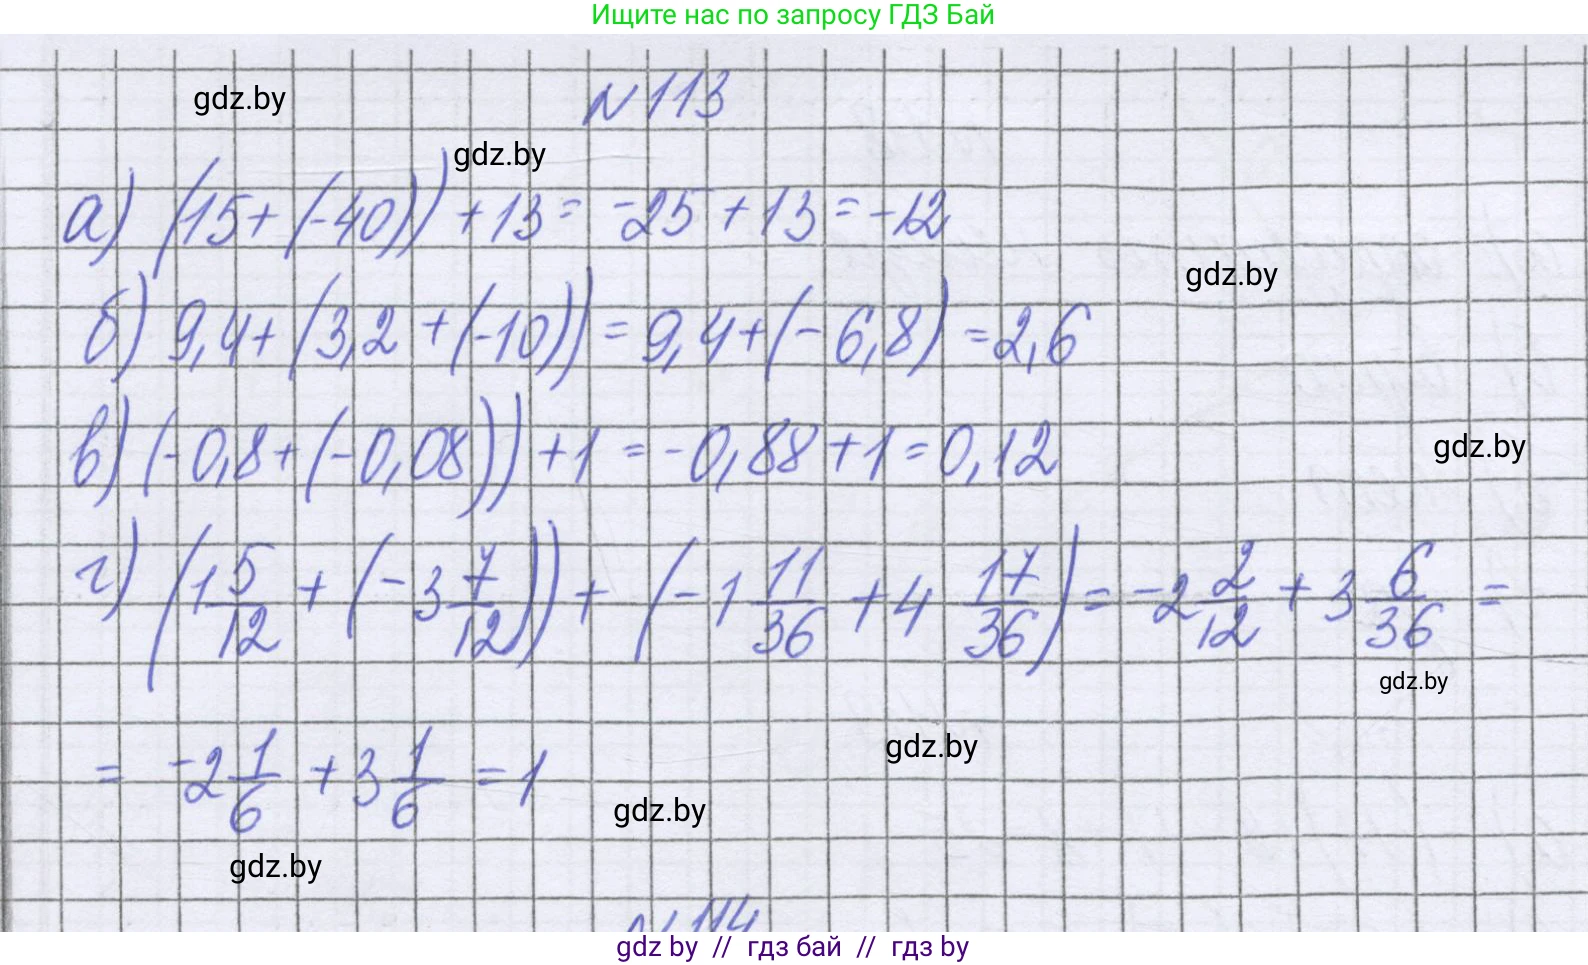 Ищите нас по запросу ГДЗ Бай
gdz.by
N 113
gdz.by
а) (15+(-40))+13= -25+13=-12
gdz.by
б) 9,4+(3,2+(-10))=9,4+(-6,8)=2,6
в) (-0,8+(-0,08))+1=-0,88+1=0,12
gdz.by
г) (1 5/12 + (-3 7/12)) + (-1 11/36 + 4 17/36) = -2 2/12 + 3 6/36 =
gdz.by
= -2 1/6 + 3 1/6 = 1
gdz.by
gdz.by
gdz.by
N 114
gdz by // гдз бай // гдз by